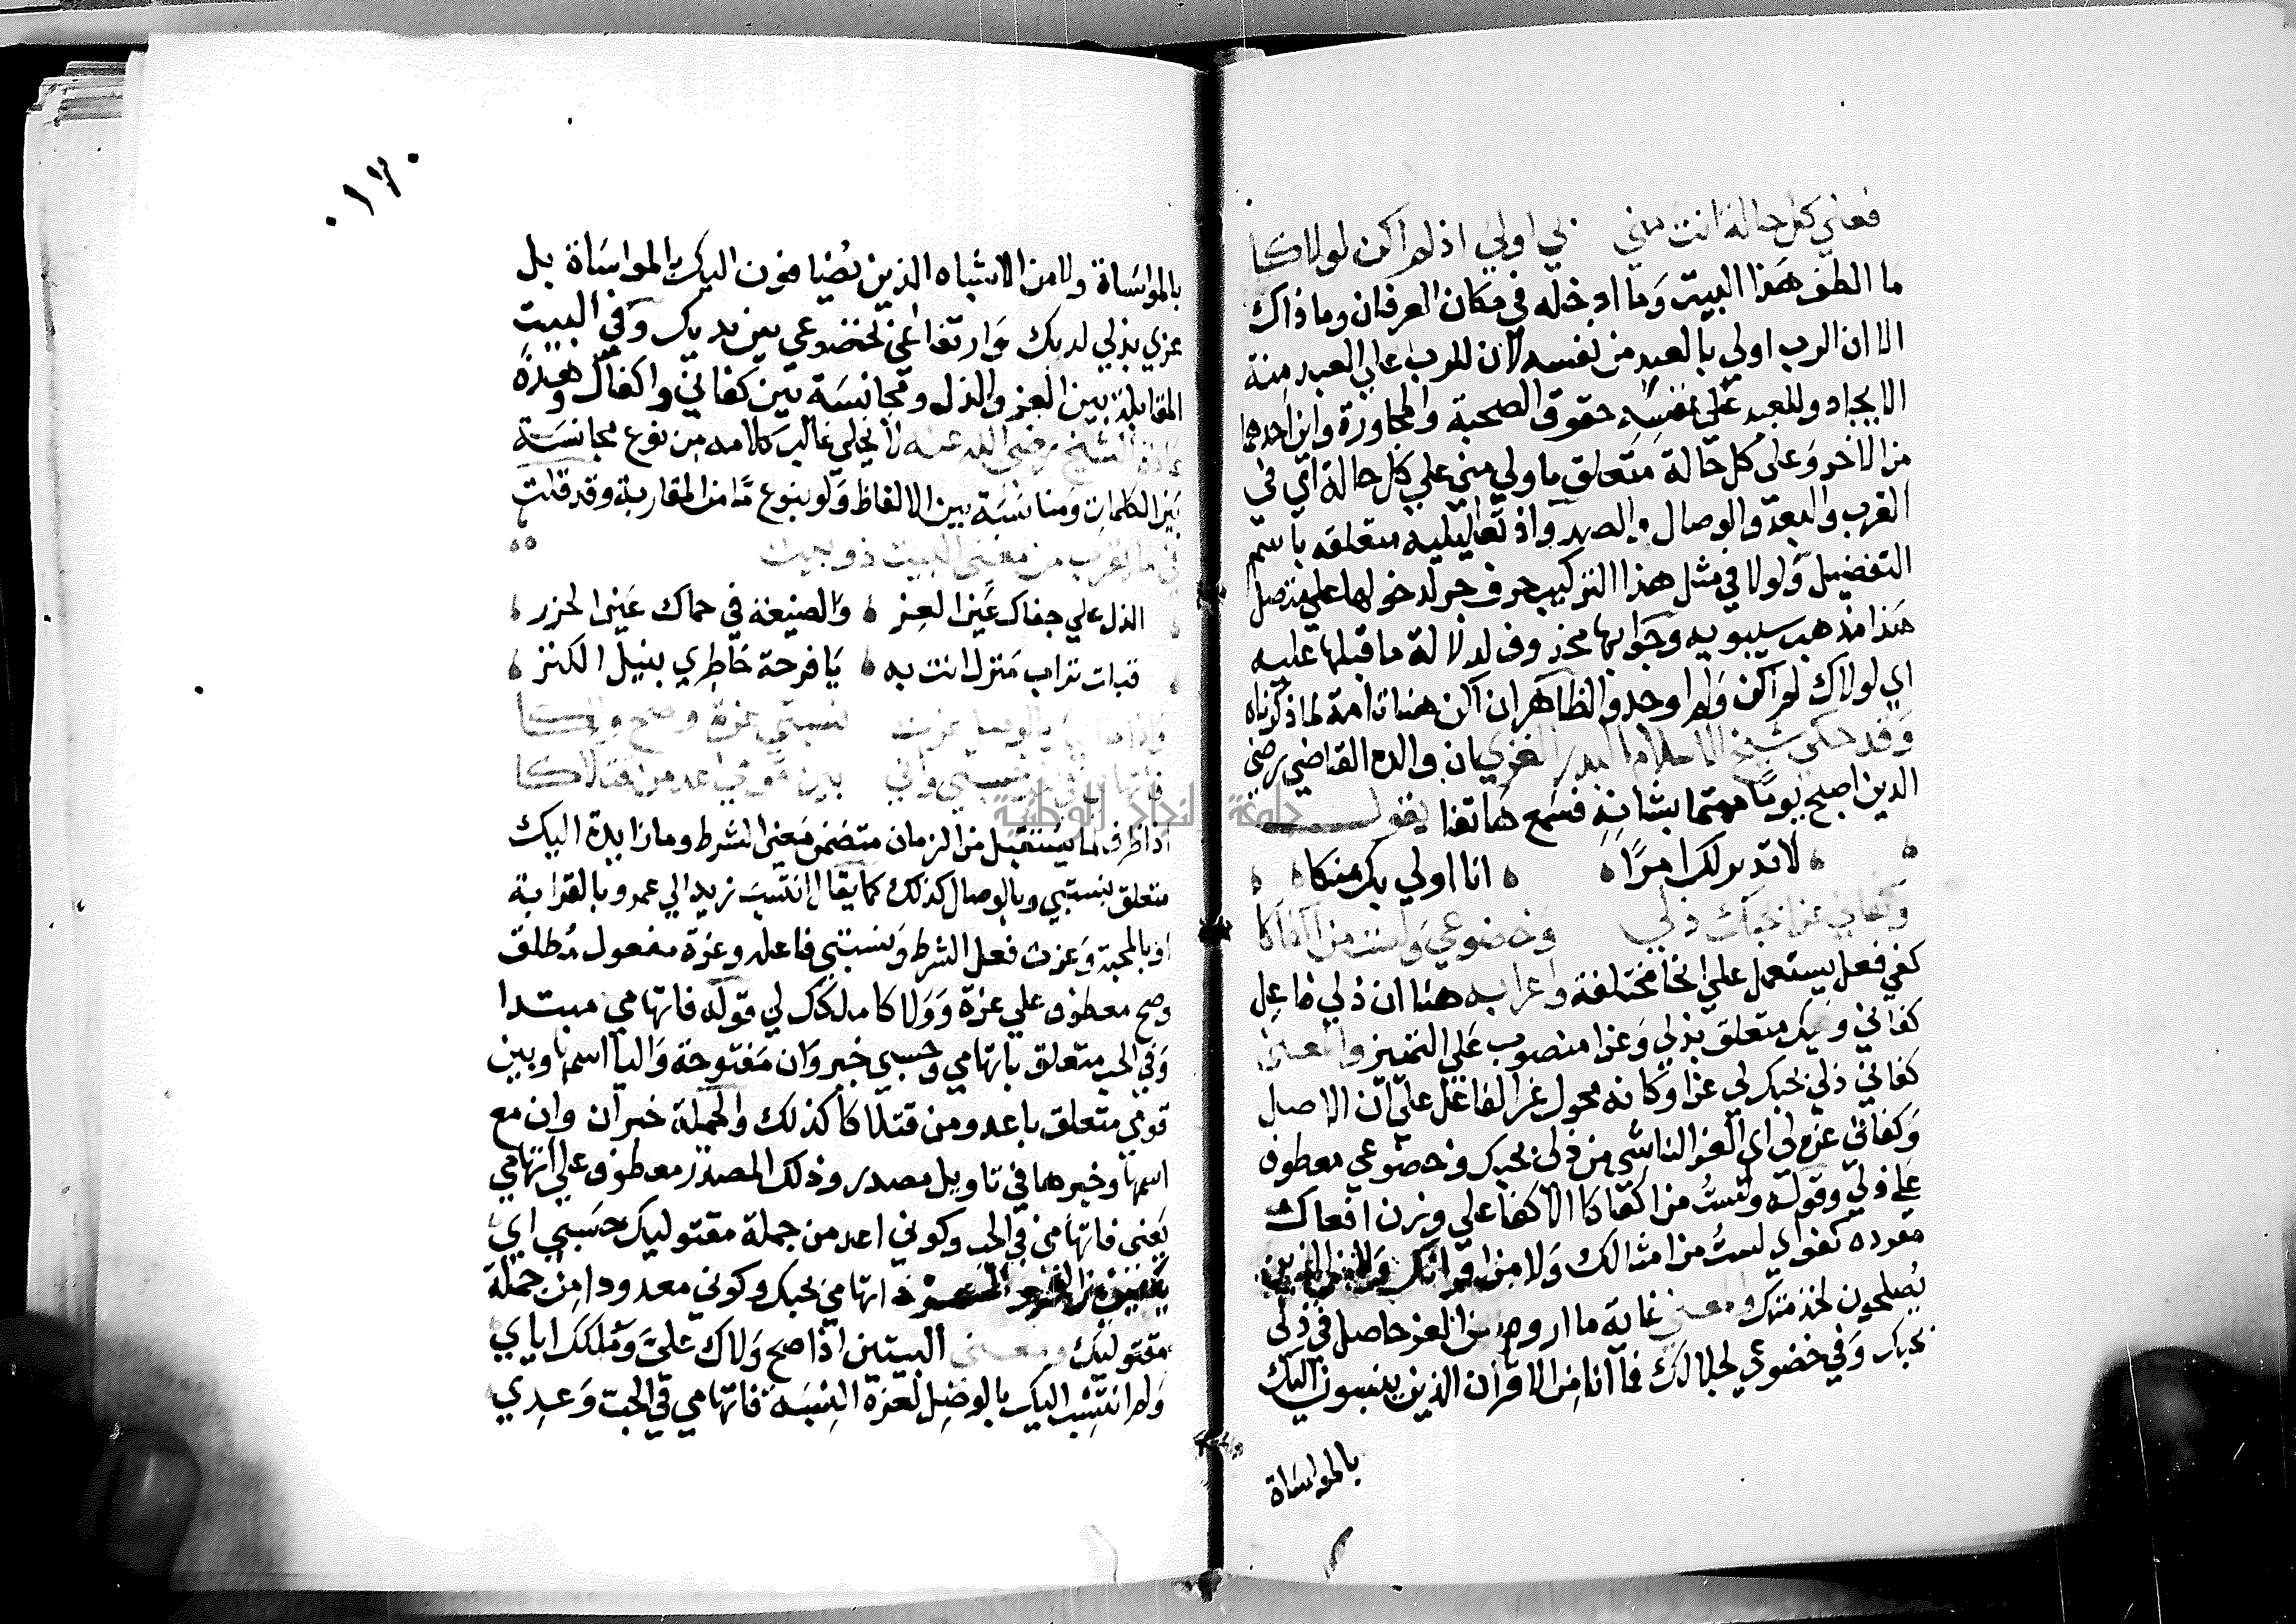 فعلي كل حالة انت مني بي اولي اذ لم اكن لولاكا
ما الطف هذا البيت وما ادخله في مكان العرفان وما ذاك
الا ان الرب اولي بالعبد من نفسه لان للرب علي العبد منة
الايجاد وللعبد علي نفسه حقوق الصحبة والمجاورة واين احدهما
من الاخر وعلى كل حالة متعلق باولي مني علي كل حالة اي في
القرب والبعد والوصال والصد واذ تعليليه متعلقه باسم
التفضيل ولولا في مثل هذا التركيب حرف جر لدخولها علي متصل
هذا مذهب سيبويه وجوابها محذوف لدلالة ما قبلها عليه
اي لولاك لم اكن ولم اوجد والظاهر ان اكن هنا تامة لما ذكرناه
وقد حكى شيخ الاسلام البدر الغزي ان والده القاضي رضي
الدين اصبح يوما مهتما بشانه فسمع هاتفا يقول
لا تدبر لك امرا انا اولي بك منكا
وكفاني عزا بحبك ذلي وخضوعي ولست من اكفاكا
كفي فعل يستعمل علي انحا مختلفة واعرابه هنا ان ذلي فاعل
كفاني وبحبك متعلق بذلي وعزا منصوب علي التمييز والمعنى
كفاني ذلي بحبك لي عزا وكانه محول عن الفاعل علي ان الاصل
وكفاني عز لي اي العز الناشي من ذلي بحبك وخضوعي معطوف
علي ذلي وقوله ولست من اكفاكا الاكفا علي وزن افعال
مفرده كفو اي لست من امثالك ولا من اقرانك
يصلحون لخدمتك والمعنى غاية ما اروم من العز حاصل في ذلي
بحبك وفي خضوعي لجلالك فما انا من الاقران الذين ينسبون اليك
بالمواساة
١٧٠
بالمواساة ولا من الاشباه الذين يضيافون اليك بالمواساة بل
عزي بذلي لديك وارتفاعي بخضوعي بين يديك وفي البيت
المقابلة بين العز والذل ومجانسة بين كفاني واكفاك وهذه
عادة الشيخ رضي الله عنه لا يخلي غالب كلامه من نوع مجانسة
بين الكلمات ومناسبة بين الالفاظ ولو بنوع ما من المقاربة وقد قلت
في ما يقرب من معنى البيت ذو بيت
الذل علي جفاك عين العز والضيعة في حماك عين الحرز
قبلت تراب منزل انت به يا فرحة خاطري بنيل الكنز
واذا ما اليك بالوصل عزت نسبتي عزة وصح ولاكا
فاتهامي بالحب حسبي واني بين قومي اعد من قتلاكا
اذا ظرف لما يستقبل من الزمان متضمن معنى الشرط وما زايدة اليك
متعلق بنسبتي وبالوصال كذلك كما يقال انتسب زيد الي عمرو بالقرابة
او بالمحبة وعزت فعل الشرط ونسبتي فاعله وعزة مفعول مطلق
وصح معطوف علي عزة وولاكا ملكك لي قوله فاتهامي مبتدا
وفي الحب متعلق باتهامي وحسبي خبر وان مفتوحة واليا اسمها وبين
قومي متعلق باعد ومن قتلاكا كذلك والجملة خبر ان وان مع
اسمها وخبرها في تاويل مصدر وذلك المصدر معطوف علي اتهامي
يعني فاتهامي في الحب وكوني اعد من جملة مقتوليك حسبي اي
يكفيني اتهامي بحبك وكوني معدودا من جملة
مقتوليك ومعنى البيتين اذا صح ولاك علي وملكك اياي
ولم انتسب اليك بالوصل لعزة النسبة فاتهامي في الحب وعدي